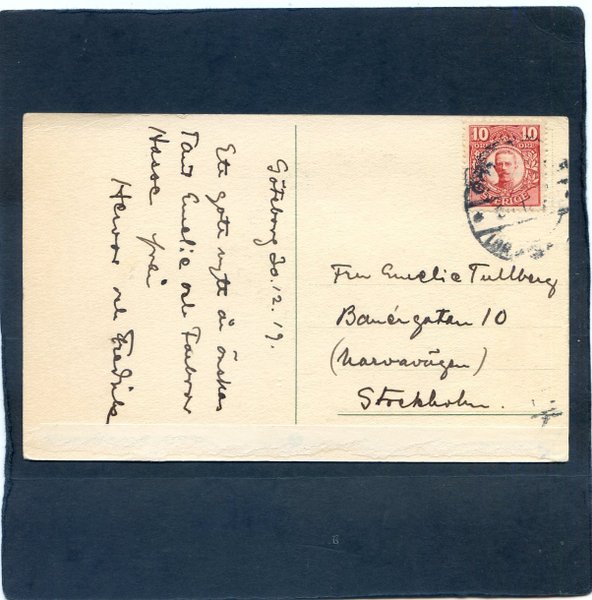 Göteborg 30.12.19.
Ett gott nytt år önskas
Tant Emelie och Farbror
Hasse från
Hervor och Fredrik
10 10
ÖRE ÖRE
SVERIGE
Fru Emelie Tullberg
Banérgatan 10
(Narvavägen)
Stockholm.